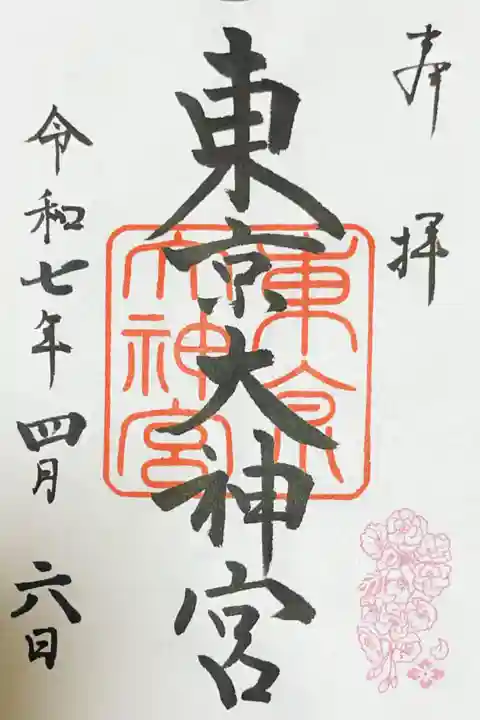 奉拝
東京大神宮
東京大神宮
令和七年四月六日